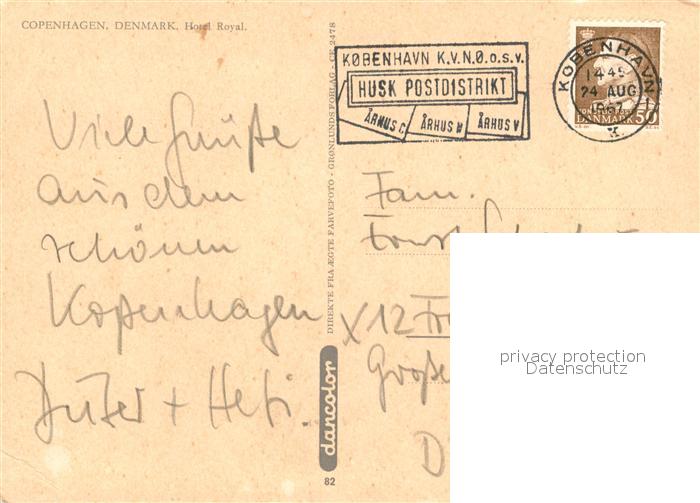 COPENHAGEN, DENMARK. Hotel Royal.
Viele Grüße
aus dem
schönen
Kopenhagen
+
DIREKTE FRA ÆGTE FARVEFOTO - GRØNLUNDS FORLAG - CE 2478
dancolor
82
KØBENHAVN K.V.N.Ø.o.s.v.
HUSK POSTDISTRIKT
ÅRHUS C ÅRHUS N ÅRHUS V
KØBENHAVN
24 AUG
1967
K.
DANMARK 50
Fam.
Ernst
X12
Große
D
privacy protection
Datenschutz